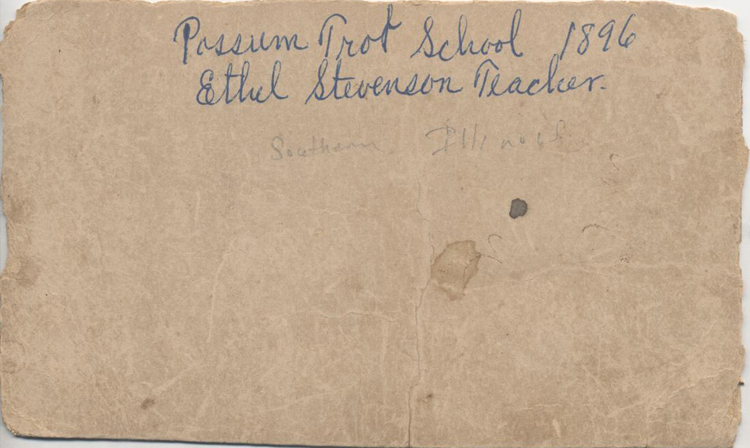 Possum Trot School 1896
Ethel Stevenson Teacher.
Southern Illinois